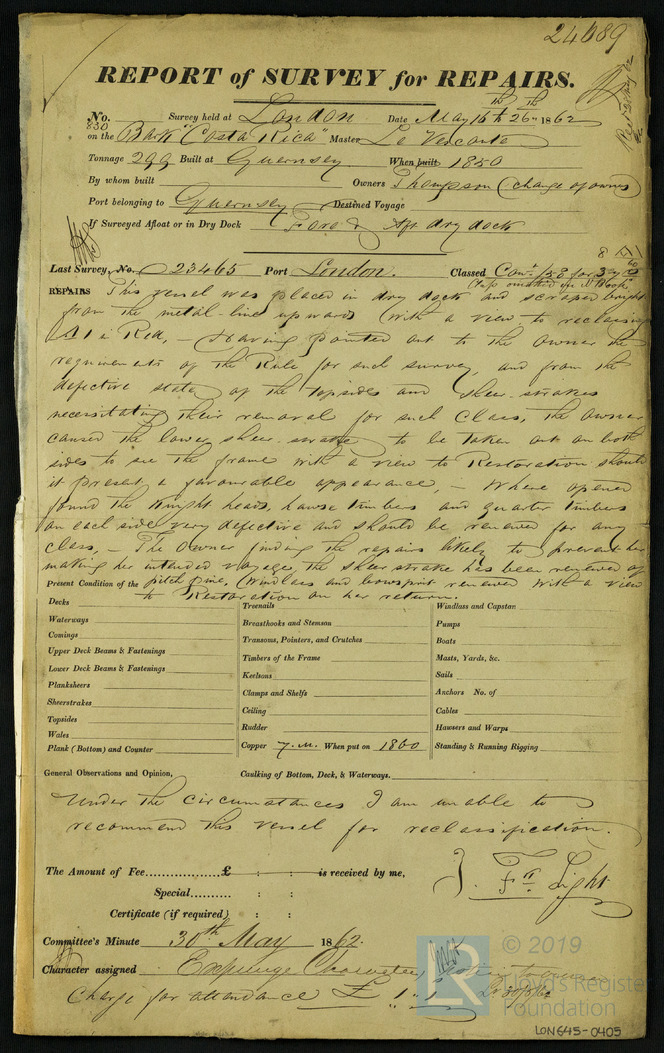 24089
REPORT of SURVEY for REPAIRS.
No. 830 Survey held at London Date May 16th & 26th 1862
on the Bark "Costa Rica" Master Le Vesconte
Tonnage 299 Built at Guernsey When built 1850
By whom built Owners Thompson (change of owners)
Port belonging to Guernsey Destined Voyage
If Surveyed Afloat or in Dry Dock Fore & Aft dry dock
Last Survey, No. 23465 Port London. Classed Cont. 58 for 3 yrs
REPAIRS This vessel was placed in dry dock and scraped bright
from the metal-line upwards (with a view to reclassing
A1 in Red, - Having pointed out to the Owner the
requirements of the Rule for such survey, and from the
defective state of the topsides and sheer-strakes
necessitating their removal for such Class, the Owner
caused the lower sheer-strake to be taken out on both
sides to see the frame with a view to Restoration should
it present a favourable appearance, - Where opened
found the Knight heads, hawse timbers and quarter timbers
on each side very defective and should be renewed for any
Class, - The Owner finding the repairs likely to prevent her
making her intended voyage, the sheerstrake has been renewed of
Present Condition of the pitch pine, Windlass and bowsprit renewed with a view
to Restoration on her return.
Decks Treenails Windlass and Capstan
Waterways Breasthooks and Stemson Pumps
Comings Transoms, Pointers, and Crutches Boats
Upper Deck Beams & Fastenings Timbers of the Frame Masts, Yards, &c.
Lower Deck Beams & Fastenings Keelsons Sails
Planksheers Clamps and Shelfs Anchors No. of
Sheerstrakes Ceiling Cables
Topsides Rudder Hawsers and Warps
Wales Copper Y.M. When put on 1860 Standing & Running Rigging
Plank (Bottom) and Counter
General Observations and Opinion, Caulking of Bottom, Deck, & Waterways.
Under the circumstances I am unable to
recommend this vessel for reclassification.
The Amount of Fee £ : : is received by me,
Special : :
Certificate (if required) : :
Light
Committee's Minute 30th May 1862.
Character assigned Expunge Character
Charge for attendance £1 " 1
© 2019
LR
Lloyd's Register
Foundation
LON645-0405